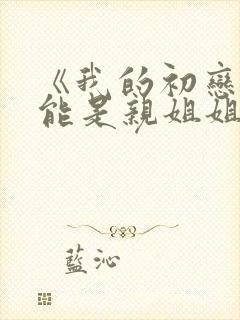 《我的初戀
能是親姐姐
藍沁